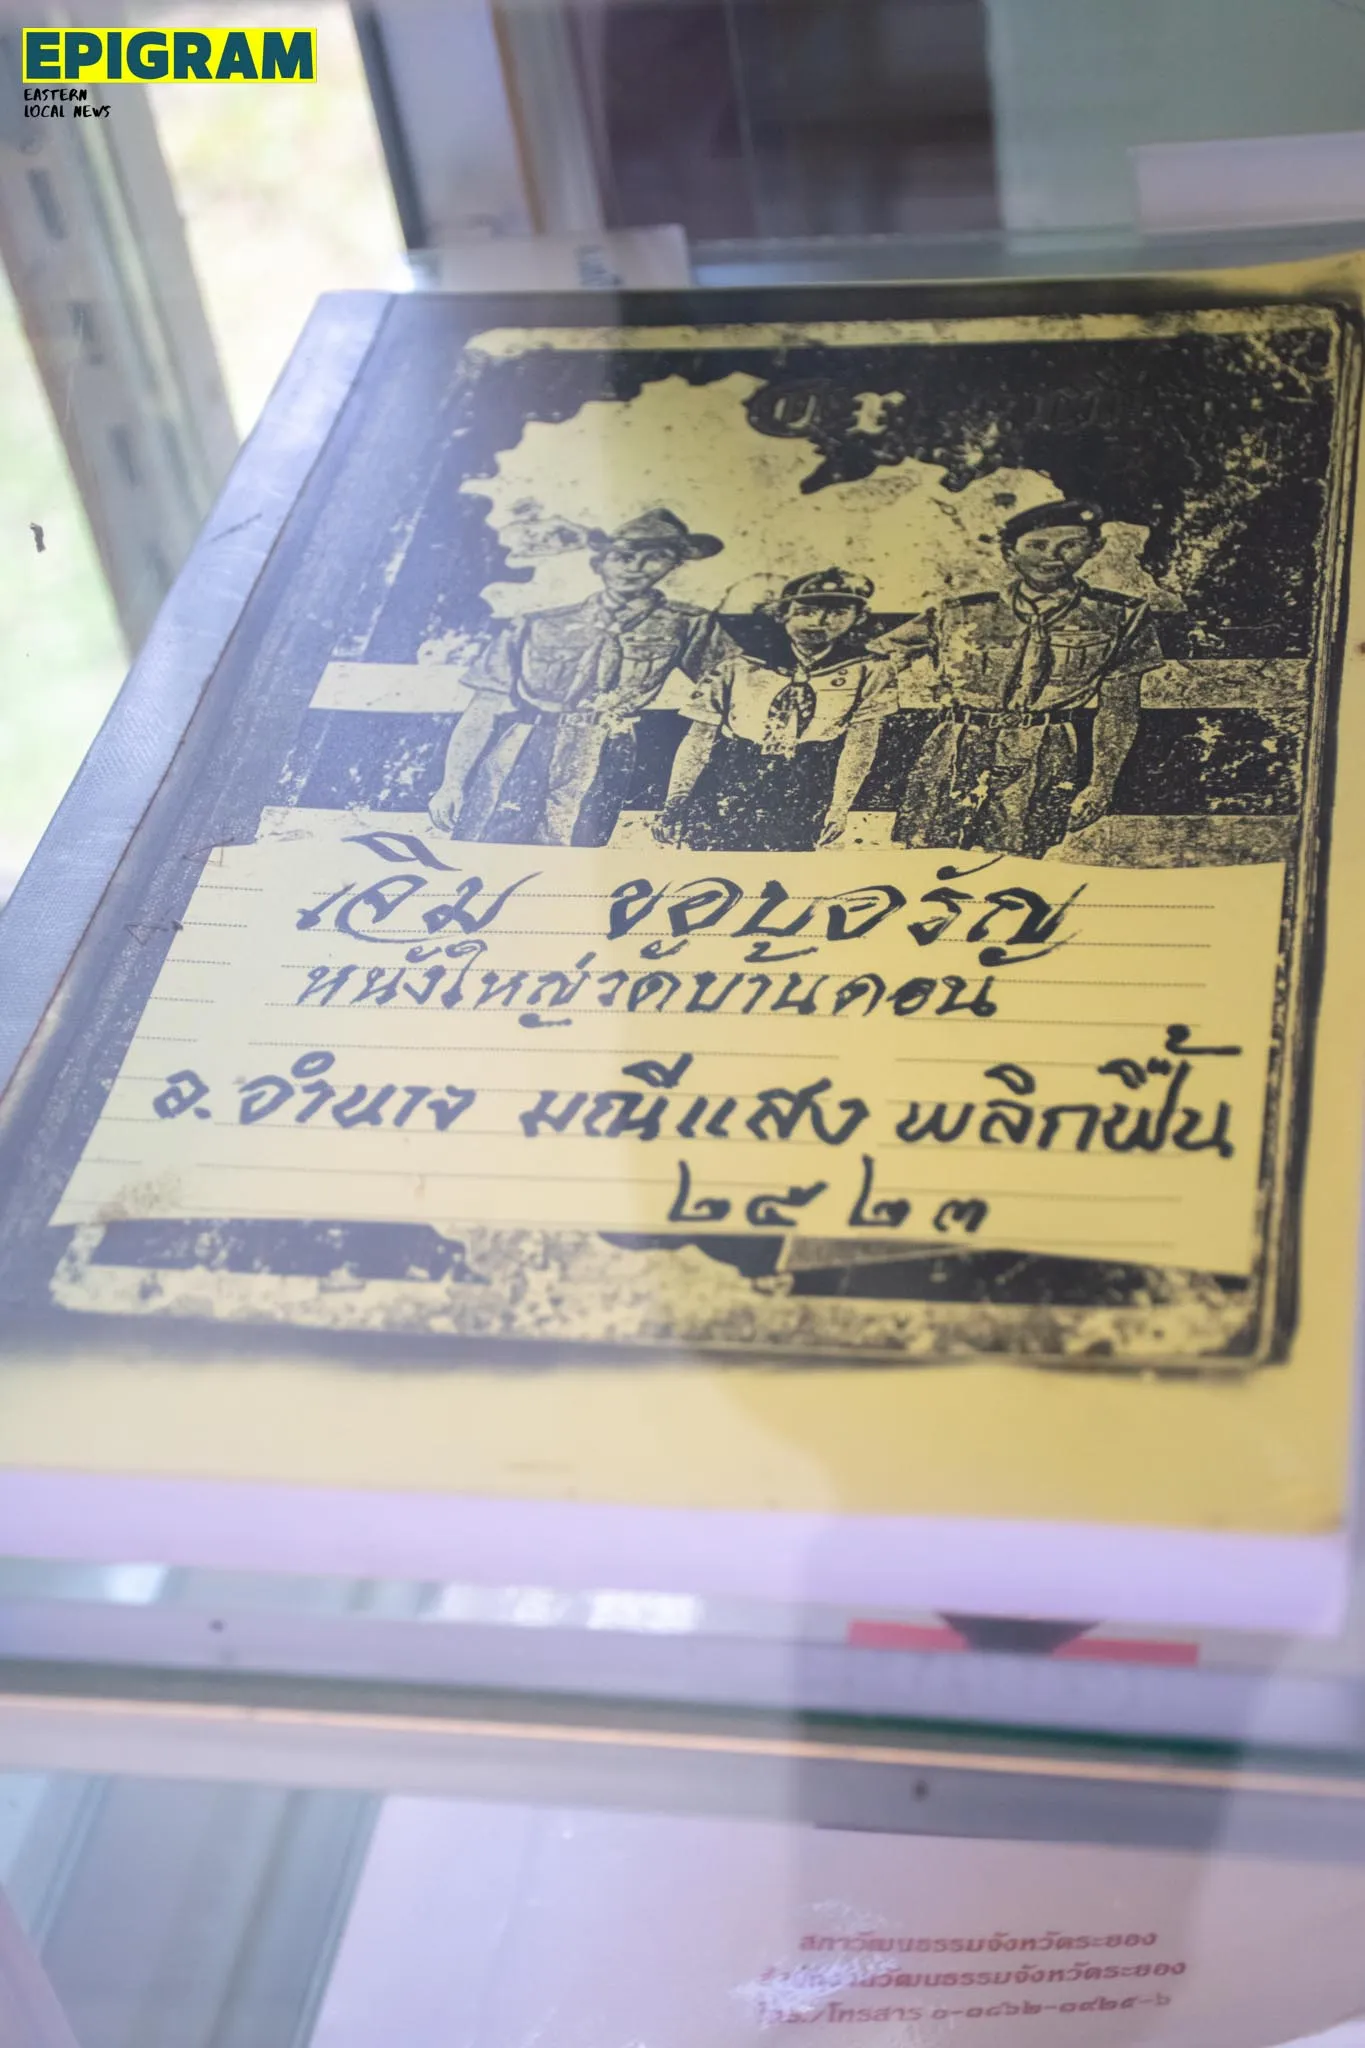 EPIGRAM
EASTERN
LOCAL NEWS
เจิม ขอบอรัญ
หนังใหญ่วัดบ้านดอน
อ. อำนาจ มณีแสง พลิกฟื้น
๒๕๒๓
สภาวัฒนธรรมจังหวัดระยอง
สำนักงานวัฒนธรรมจังหวัดระยอง
โทร./โทรสาร